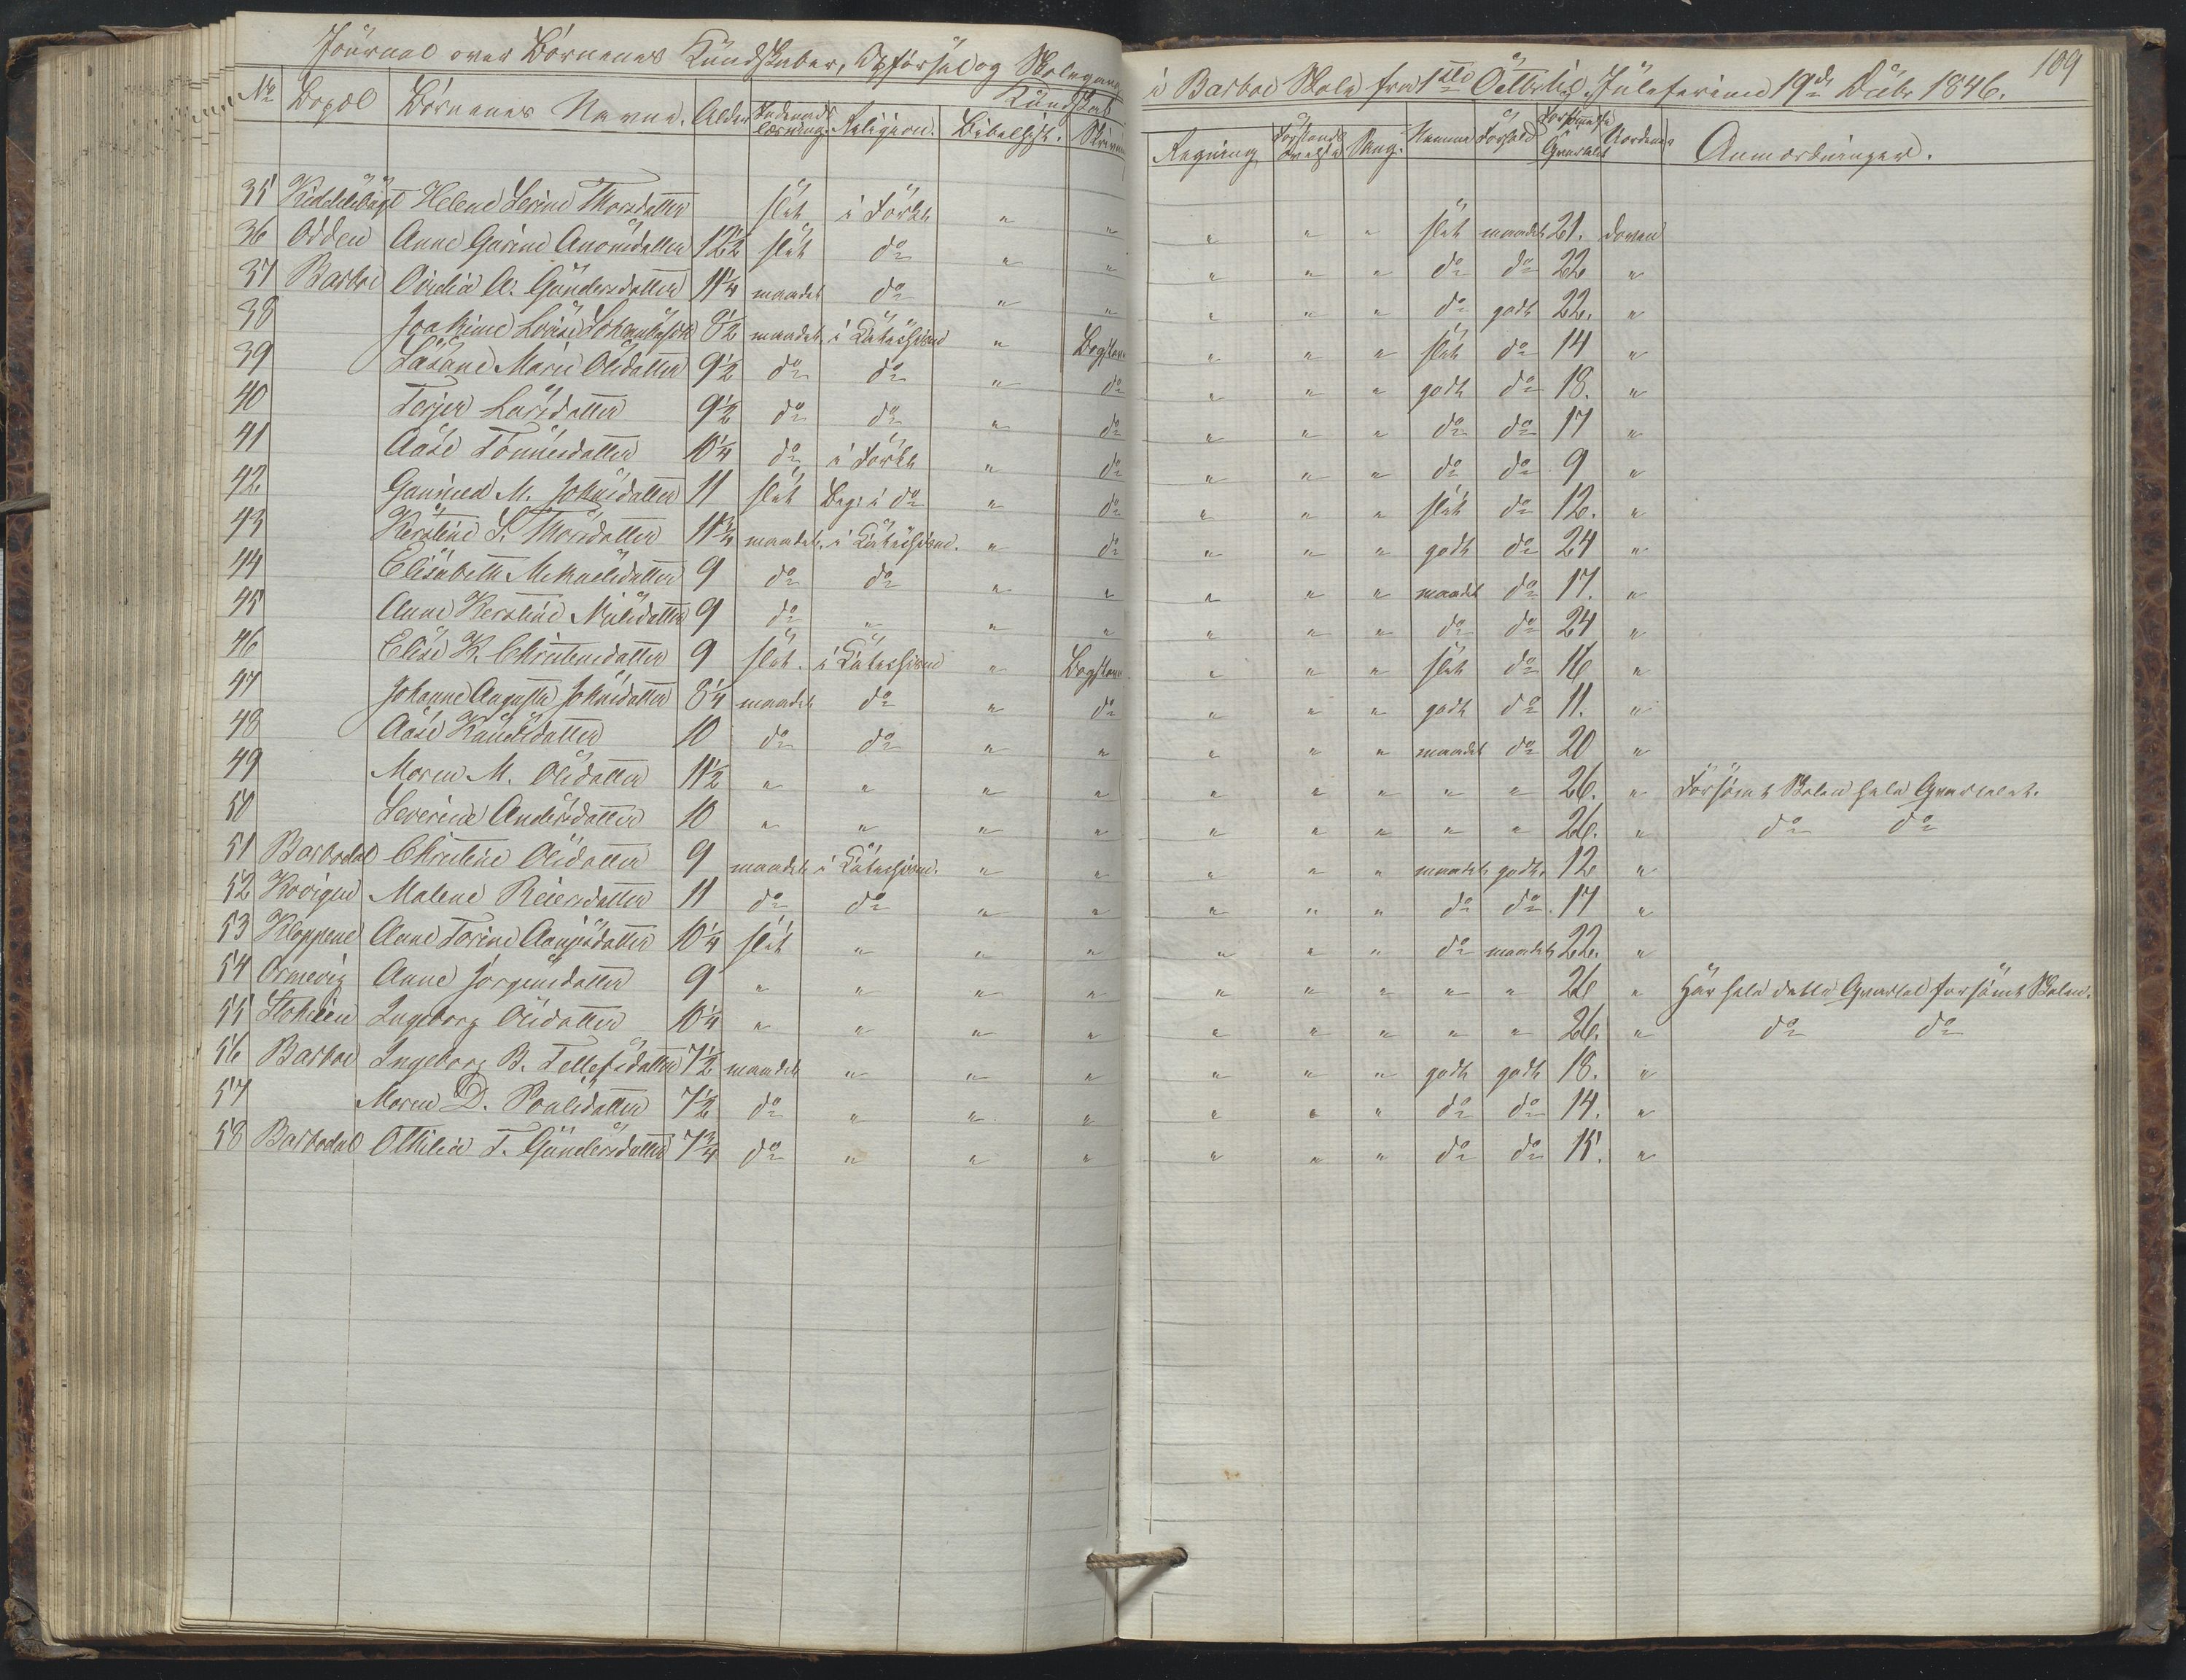 Journal over Börnenes Kundskaber, Opförsel og Skolegang i Barboe Skole fra 1ste Octbr til Juleferien 19de Decbr 1846. 109
No Bopæl Börnenes Navne. Alder Indenadslæsning Religion. Kundskab Bibelhist. Skrivning Regning Forstands övelse Sang. Nemme Forhold Forsömte i Qvartalet Anmærkninger.
35 Helene Serine Thorsdatter slet i Forkl " " " " " slet maadel 21. doven
36 Odden Anne Gurine 12½ slet do " " " " " do do 22 "
37 Barboe A. Gundersdatter 11¼ maadel do " " " " " do godt 22. "
38 Joakime Lovise 8½ maadel. i Katechism " Bogstav " " " slet do 14 "
39 Susane Marie Olsdatter 9½ do do " do " " " godt do 18. "
40 Terjer Larsdatter 9½ do do " do " " " do do 17 "
41 Aase Tönnesdatter 10¼ do i Forkl " do " " " do do 9 "
42 Gunild M. Johnsdatter 11 slet Beg: i do " do " " " slet do 12. "
43 Kerstine S. Thorsdatter 11¾ maadel. i Katechism. " do " " " godt do 24 "
44 Elisabeth Mekaelsdatter 9 do do " " " " " maadel do 17. "
45 Anne Kerstine Nilsdatter 9 do " " " " " " do do 24 "
46 Elise K. Christensdatter 9 slet. i Katechism " Bogstav " " " slet do 16 "
47 Johanne Augusta Johnsdatter 8¼ maadel do " do " " " godt do 11. "
48 Aase Knudsdatter 10 do do " " " " " maadel do 20 "
49 Maren M. Olsdatter 11½ " " " " " " " " " 26. " Forsömt Skolen hele Qvartalet.
50 Severine Andersdatter 10 " " " " " " " " " 26. " do do
51 Barbodal Christine Olsdatter 9 maadel i Katechism. " " " " " maadel godt. 12 "
52 Malene Reiersdatter 11 do do " " " " " do do. 17 "
53 Kloppene Anne Torine 10¼ slet " " " " " " do maadel 22. "
54 Ormevig Anne Jörgensdatter 9 " " " " " " " " " 26 " Har hele dette Qvartal forsömt Skolen.
55 Ingeborg Olsdatter 10¼ " " " " " " " " " 26. " do do
56 Barboe Ingeborg B. Tellefsdatter 7½ maadel " " " " " " godt godt 18. "
57 Maren D. Poulsdatter 7½ do " " " " " " do do 14. "
58 Barbodal Othilie T. Gundersdatter 7¾ do " " " " " " do do 15. "